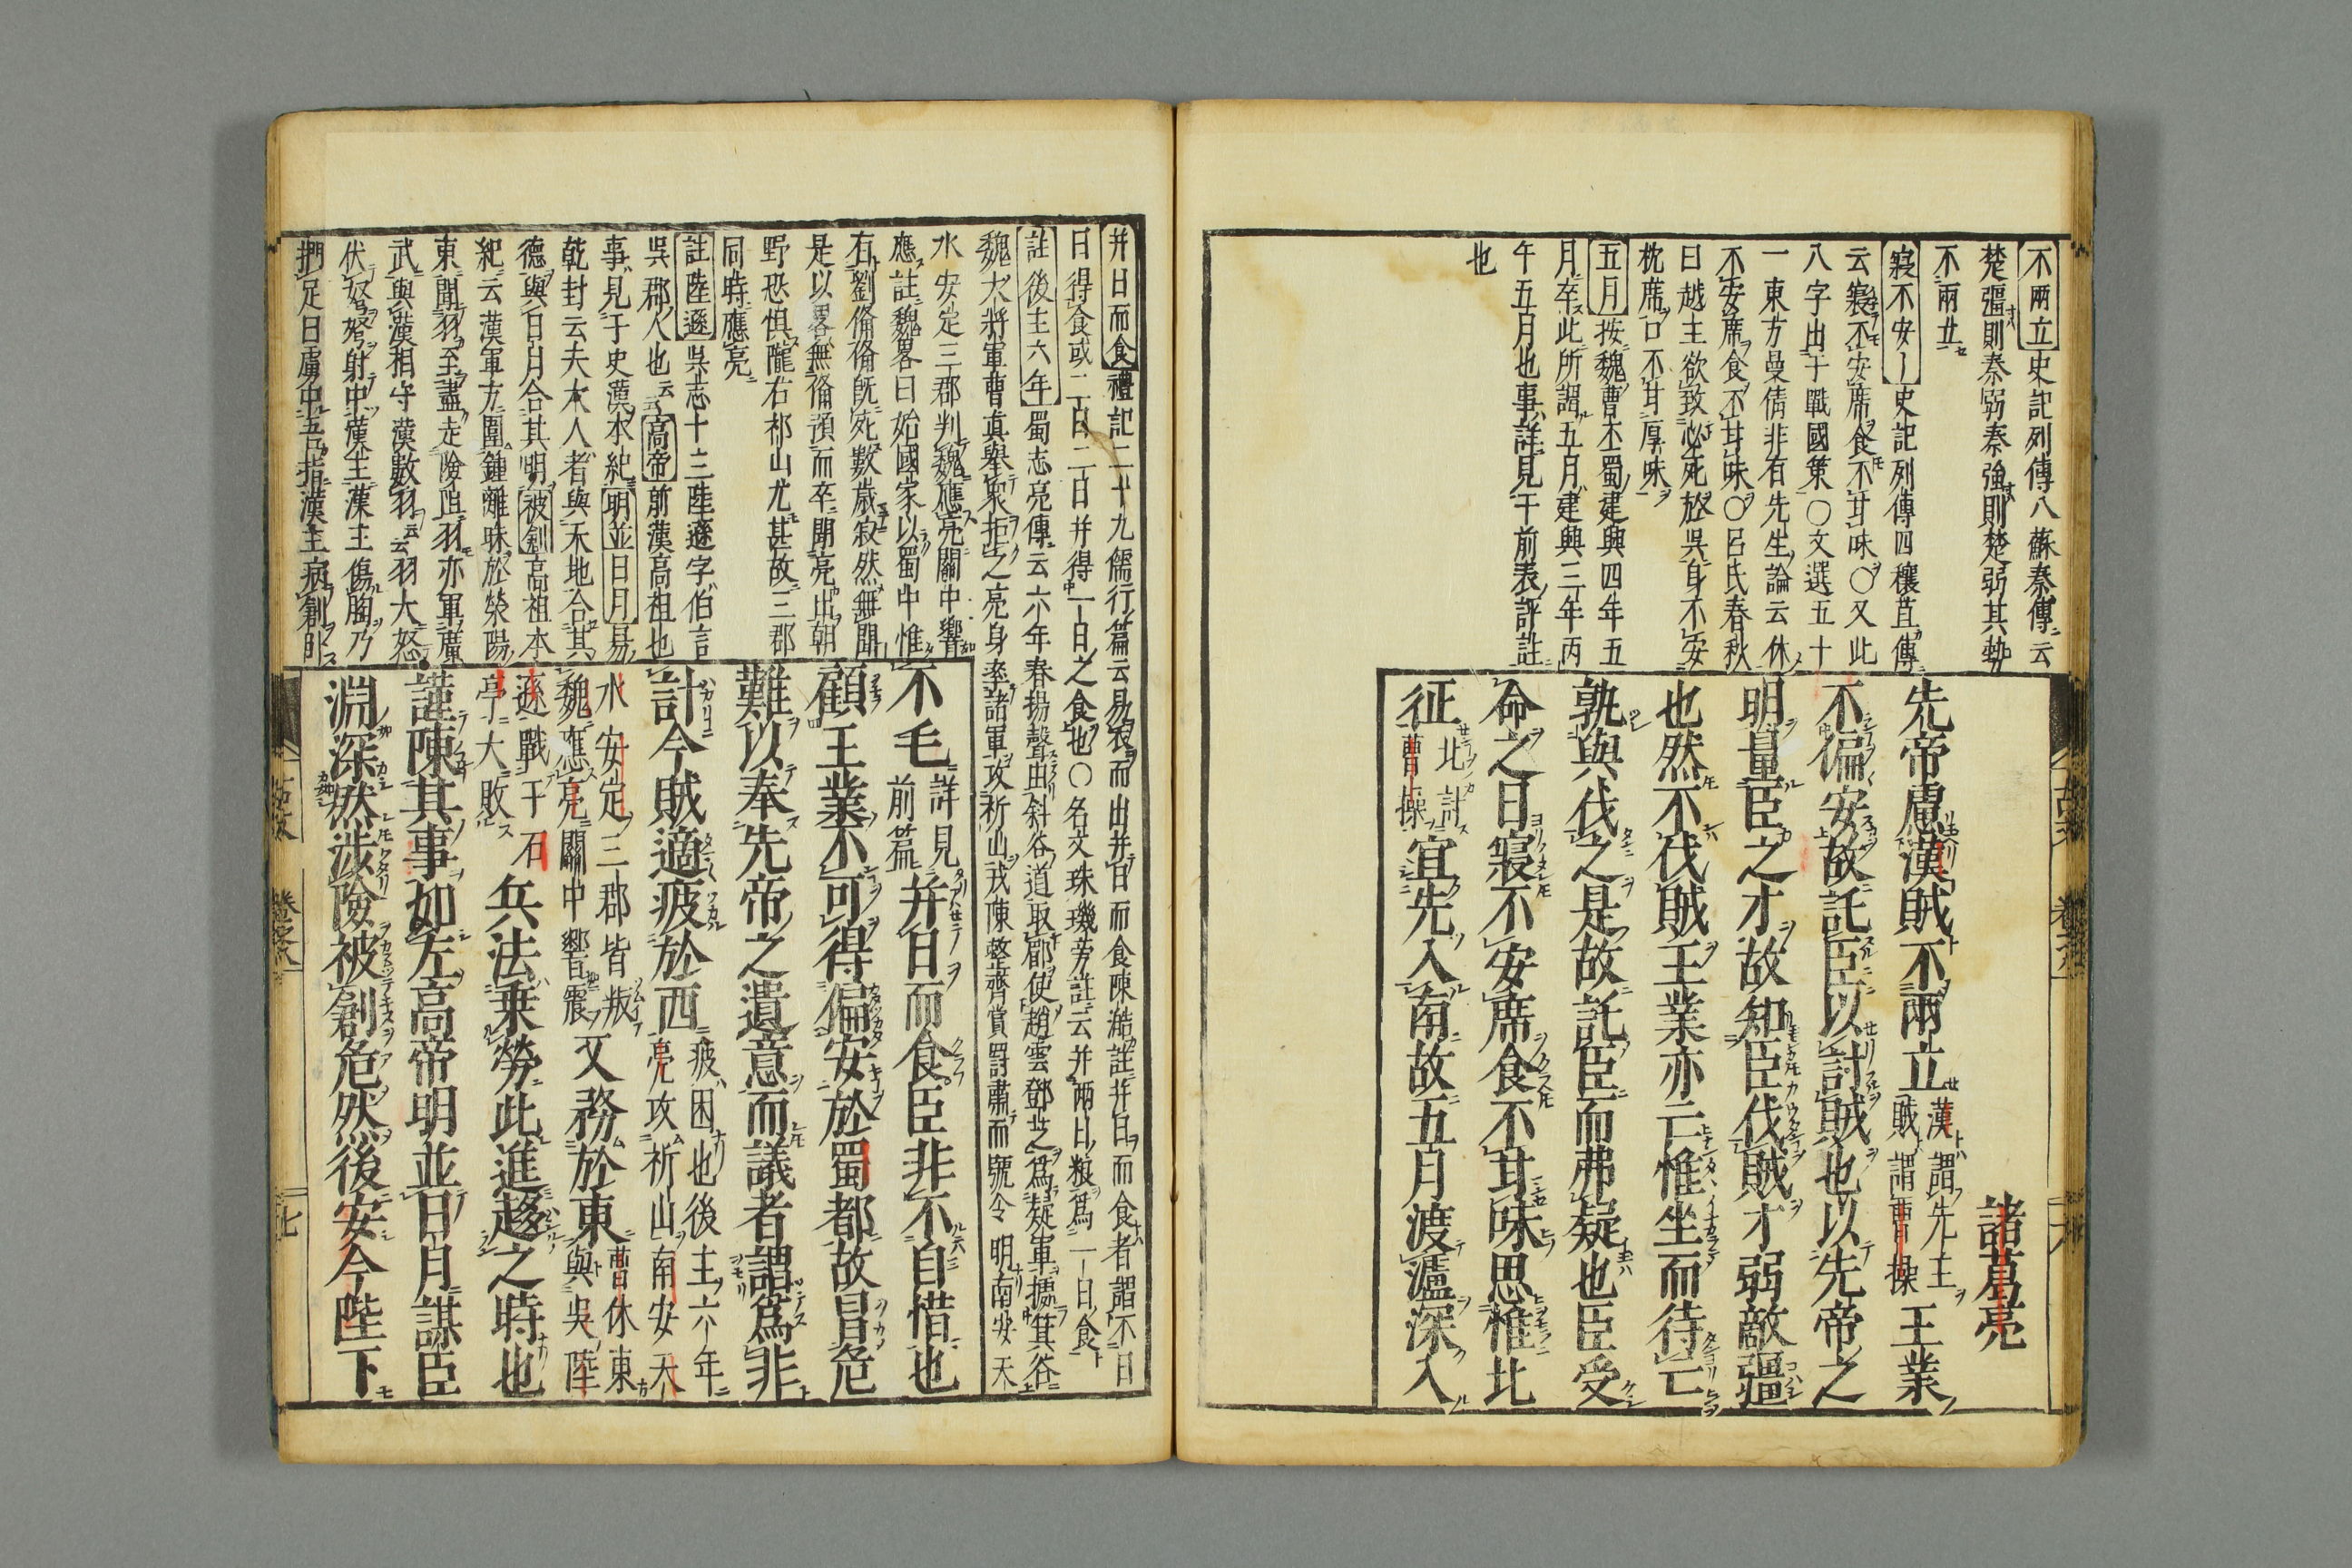 不兩立史記列傳八蘇秦傳云
楚彊則秦弱秦強則楚弱其勢
不兩立
寢不安〡史記列傳四穰苴傳
云寢不安席食不甘味○又此
八字出于戰國策○文選五十
一東方曼倩非有先生論云休
不安席食不甘味○呂氏春秋
曰越主欲致必死於吳身不安
枕席口不甘厚味
五月按魏曹丕蜀建興四年五
月卒此所謂五月建興三年丙
午五月也事詳見于前表評註
也
諸葛亮
先帝慮漢賊不兩立漢謂先主賊謂曹操王業
不偏安故託臣以討賊也以先帝之
明量臣之才故知臣伐賊才弱敵彊
也然不伐賊王業亦亡惟坐而待亡
孰與伐之是故託臣而弗疑也臣受
命之日寢不安席食不甘味思惟北
征北計曹操宜先入南故五月渡瀘深入
并日而食禮記二十九儒行篇云易衣而出并日而食陳澔註并日而食者謂不日
日得食或二日三日并得一日之食也○名文珠璣旁註云并兩日粮爲一日食
註後主六年蜀志亮傳云六年春揚聲由斜谷道取郿使趙雲鄧芝爲疑軍據箕谷
魏大將軍曹真舉衆拒之亮身率諸軍攻祈山戎陳整齊賞罰肅而號令明南安天
水安定三郡判魏應亮關中響
應註魏畧曰始國家以蜀中惟
有劉俻俻既死數歲寂然無聞
是以畧無俻預而卒聞亮出朝
野恐惧隴右祁山尤甚故三郡
同時應亮
註陸遜吳志十三陸遜字伯言
吳郡人也云云高帝前漢高祖也
事見于史漢本紀明並日月易
乾封云夫大人者與天地合其
德與日月合其明被創高祖本
紀云漢軍方圍鍾離昧於滎陽
東聞羽至盡走險阻羽亦軍廣
武與漢相守漢數羽云云羽大怒
伏弩弩射中漢主漢主傷胸乃
捫足曰虜中吾指漢主病創卧
不毛詳見前篇并日而食臣非不自惜也
顧王業不可得偏安於蜀都故冒危
難以奉先帝之遺意而議者謂爲非
計今賊適疲於西疲困也後主六年亮攻祈山南安天
水安定三郡皆叛魏應亮關中響震又務於東曹休東與吳陸
遜戰于石亭大敗兵法乗勞此進趨之時也
謹陳其事如左高帝明並日月謀臣
淵深然涉險被創危然後安今陛下